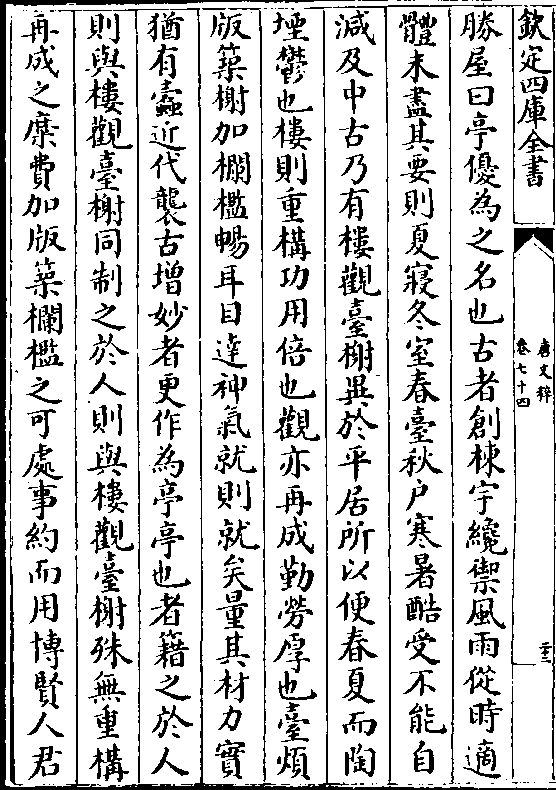 欽定四庫全書
唐文粹
卷七十四
勝屋曰亭優為之名也古者創棟宇纔禦風雨從時適
體未盡其要則夏寢冬室春臺秋户寒暑酷受不能自
減及中古乃有樓觀臺榭異於平居所以便春夏而陶
堙鬱也樓則重構功用倍也觀亦再成勤勞厚也臺煩
版築榭加欄檻暢耳目達神氣就則就矣量其材力實
猶有蠹近代襲古增妙者更作為亭亭也者籍之於人
則與樓觀臺榭同制之於人則與樓觀臺榭殊無重構
再成之縻費加版築欄檻之可處事約而用博賢人君